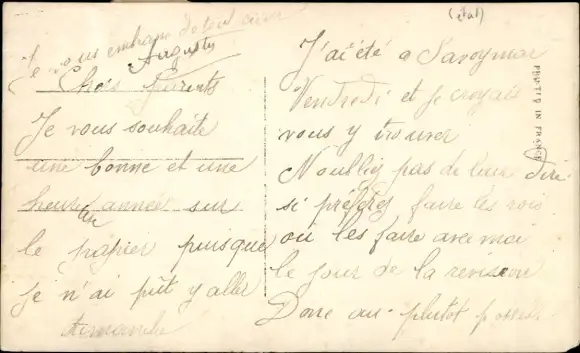 Je vous embrasse de tout cœur
Augustin
Chers Parents
Je vous souhaite
une bonne et une
heureu année sur
le papier puisque
je n'ai put y aller
dimanche
(état)
J'ai été a Savoy
Vendredi et je croyais
vous y trouver
N oubliez pas de leur dire
si préferez faire les rois
ou les faire avec moi
le jour de la revision
Donc au plutot
PRINTED IN FRANCE